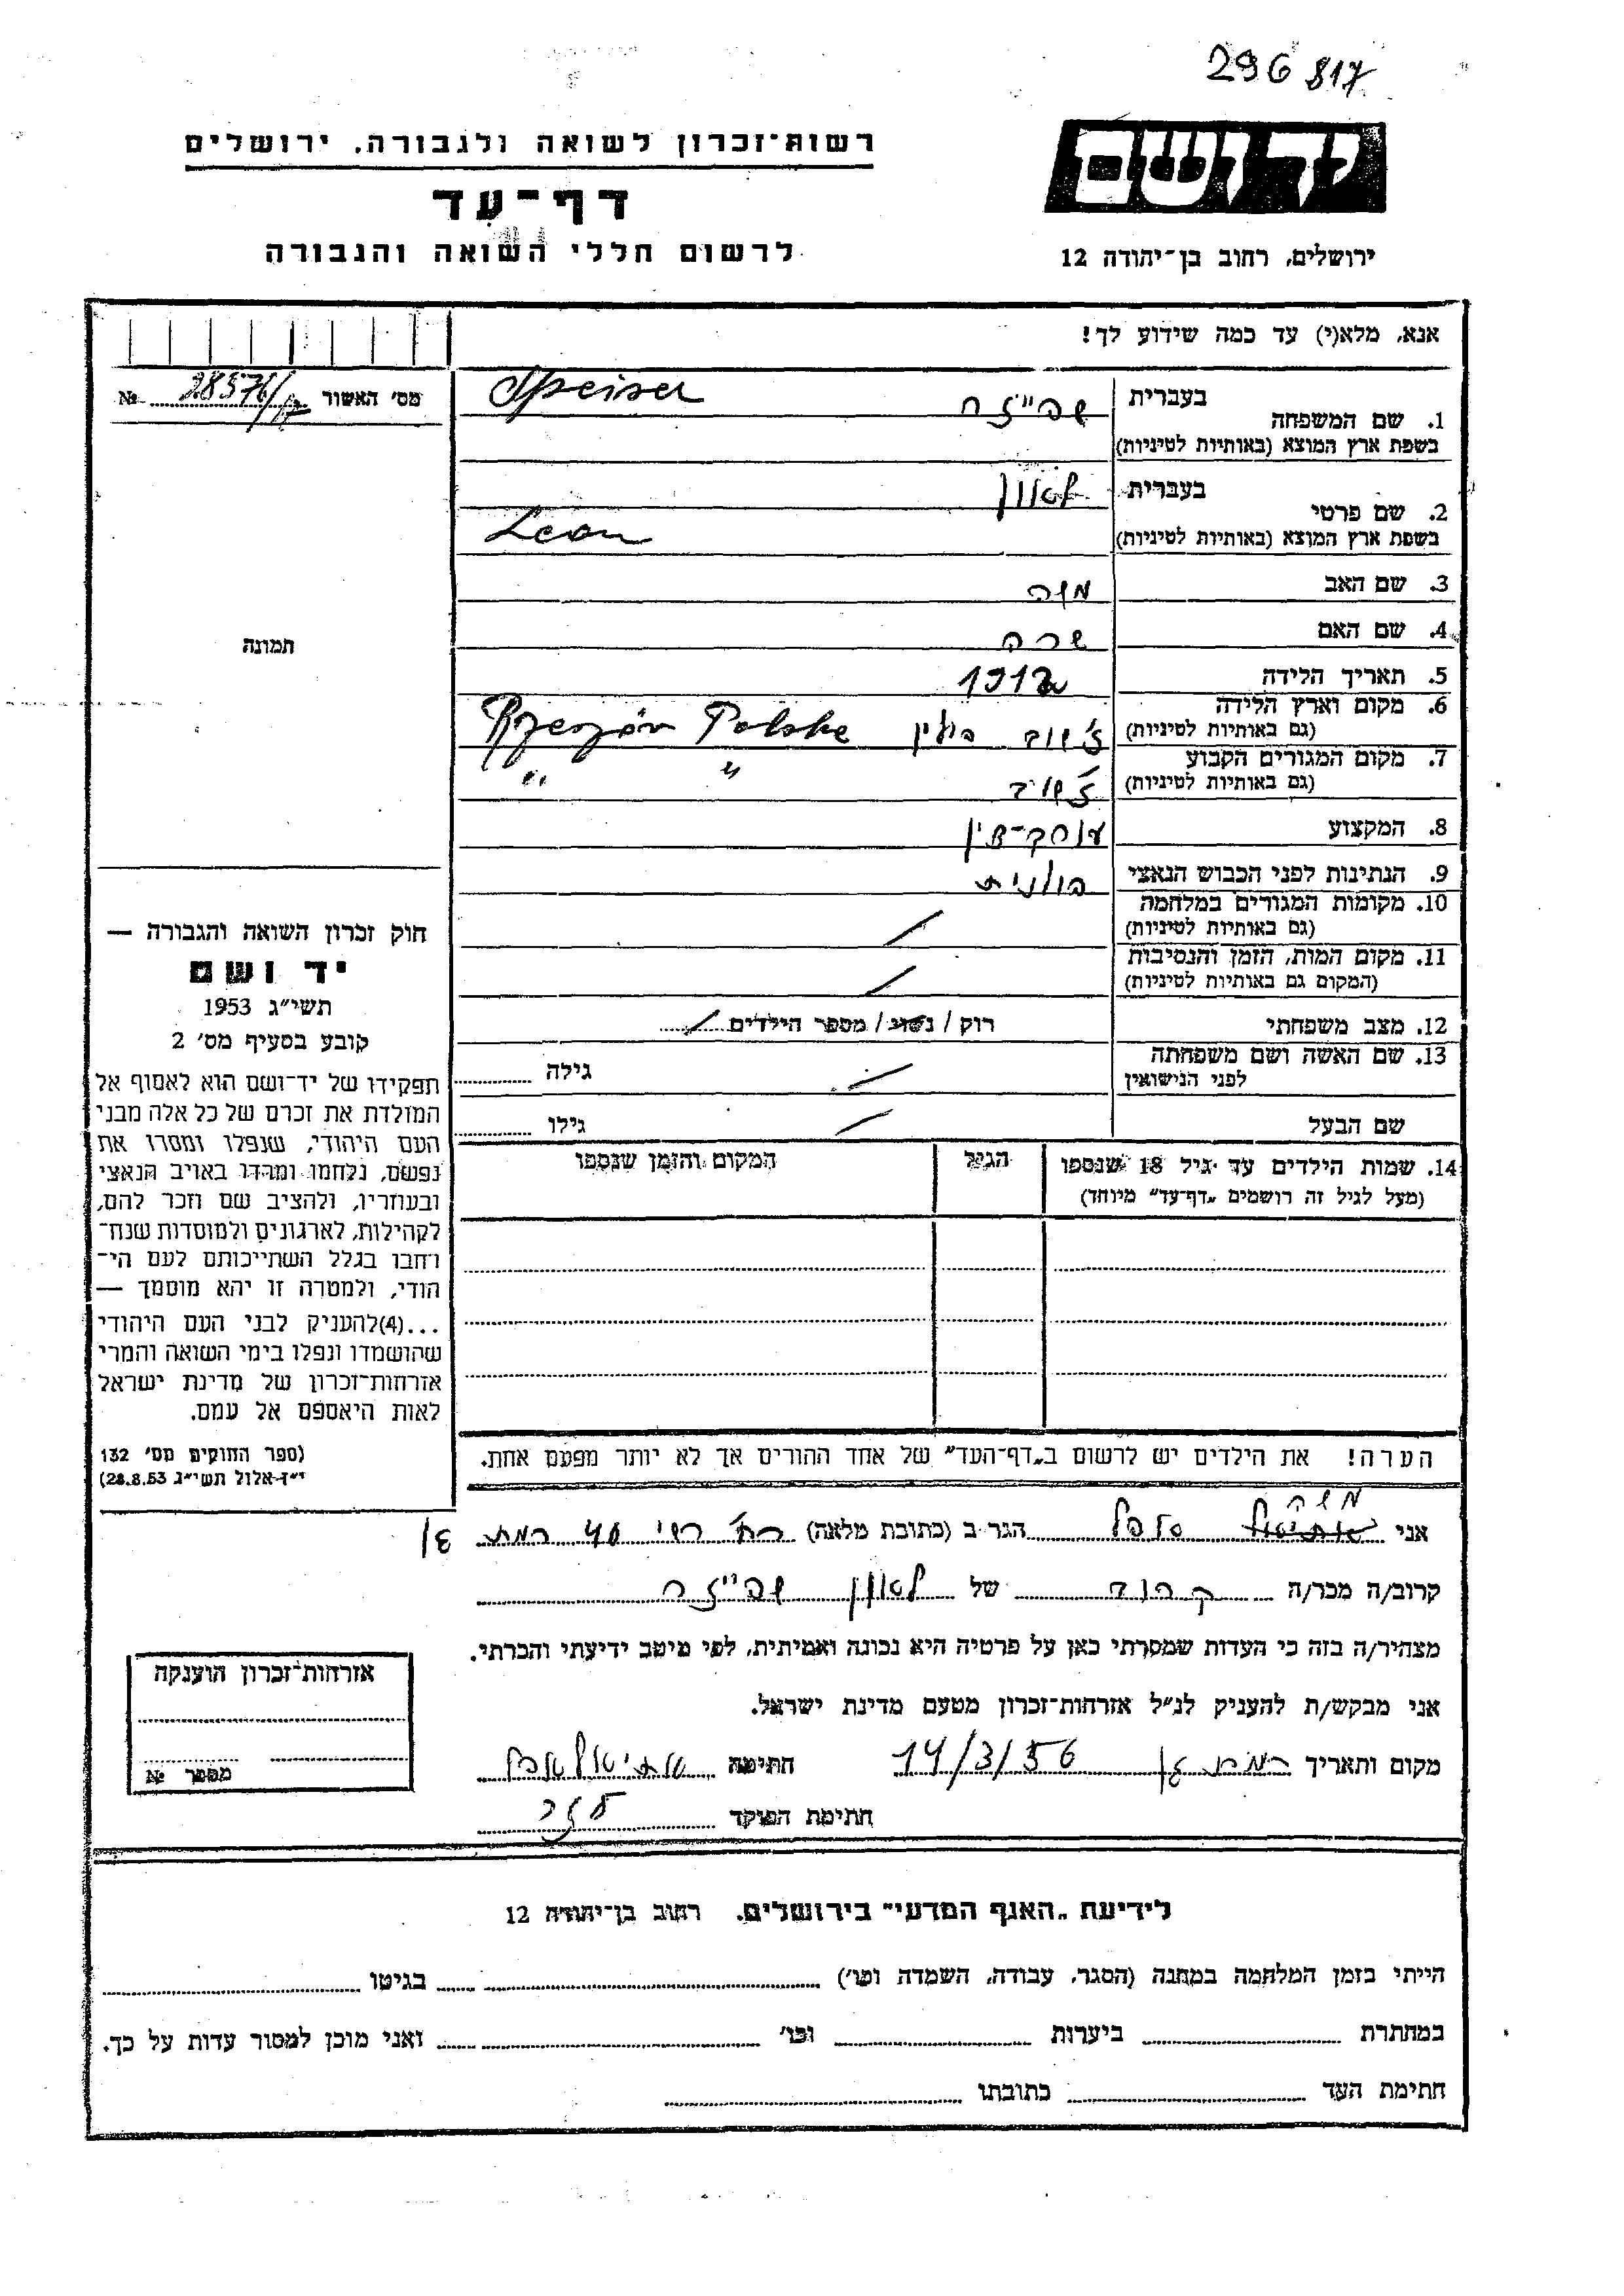 296817
רשות־זכרון לשואה ולגבורה, ירושלים
יד ושם
דף־עד
לרשום חללי השואה והגבורה
ירושלים, רחוב בן־יהודה 12
אנא, מלא(י) עד כמה שידוע לך!
מס' האשור № 28576/
1. שם המשפחה בעברית שפייזר Speiser
בשפת ארץ המוצא (באותיות לטיניות)
2. שם פרטי בעברית לאון
בשפת ארץ המוצא (באותיות לטיניות) Leon
3. שם האב משה
4. שם האם שרה
5. תאריך הלידה 1912
6. מקום וארץ הלידה ז'שוב פולין Rzeszów Polska
(גם באותיות לטיניות)
7. מקום המגורים הקבוע ז'שוב " "
(גם באותיות לטיניות)
8. המקצוע עורך־דין
9. הנתינות לפני הכבוש הנאצי פולנית
10. מקומות המגורים במלחמה /
(גם באותיות לטיניות)
11. מקום המות, הזמן והנסיבות /
(המקום גם באותיות לטיניות)
12. מצב משפחתי רוק / נשוי / מספר הילדים /
13. שם האשה ושם משפחתה / גילה
לפני הנישואין
שם הבעל / גילו
14. שמות הילדים עד גיל 18 שנספו הגיל המקום והזמן שנספו
(מעל לגיל זה רושמים „דף־עד" מיוחד)
הערה! את הילדים יש לרשום ב„דף־העד" של אחד ההורים אך לא יותר מפעם אחת.
תמונה
חוק זכרון השואה והגבורה —
יד ושם
תשי״ג 1953
קובע בסעיף מס' 2
תפקידו של יד־ושם הוא לאסוף אל
המולדת את זכרם של כל אלה מבני
העם היהודי, שנפלו ומסרו את
נפשם, נלחמו ומרדו באויב הנאצי
ובעוזריו, ולהציב שם וזכר להם,
לקהילות, לארגונים ולמוסדות שנח־
רחבו בגלל השתייכותם לעם הי־
הודי, ולמטרה זו יהא מוסמך —
...(4)להעניק לבני העם היהודי
שהושמדו ונפלו בימי השואה והמרי
אזרחות־זכרון של מדינת ישראל
לאות היאספם אל עמם.
(ספר החוקים מס' 132
י״ז אלול תשי״ג 28.8.53)
משה
אני הגר ב (כתובת מלאה) רח' רשי 40 רמת גן
קרוב/ה מכר/ה קרוב של לאון שפייזר
מצהיר/ה בזה כי העדות שמסרתי כאן על פרטיה היא נכונה ואמיתית, לפי מיטב ידיעתי והכרתי.
אני מבקש/ת להעניק לנ״ל אזרחות־זכרון מטעם מדינת ישראל.
מקום ותאריך רמת גן 14/3/56 חתימה
חתימת הפוקד
אזרחות־זכרון הוענקה
מספר №
לידיעת „האגף המדעי" בירושלים, רחוב בן־יהודה 12
הייתי בזמן המלחמה במחנה (הסגר, עבודה, השמדה וכו') בגיטו
במחתרת ביערות וכו' ואני מוכן למסור עדות על כך.
חתימת העד כתובתו